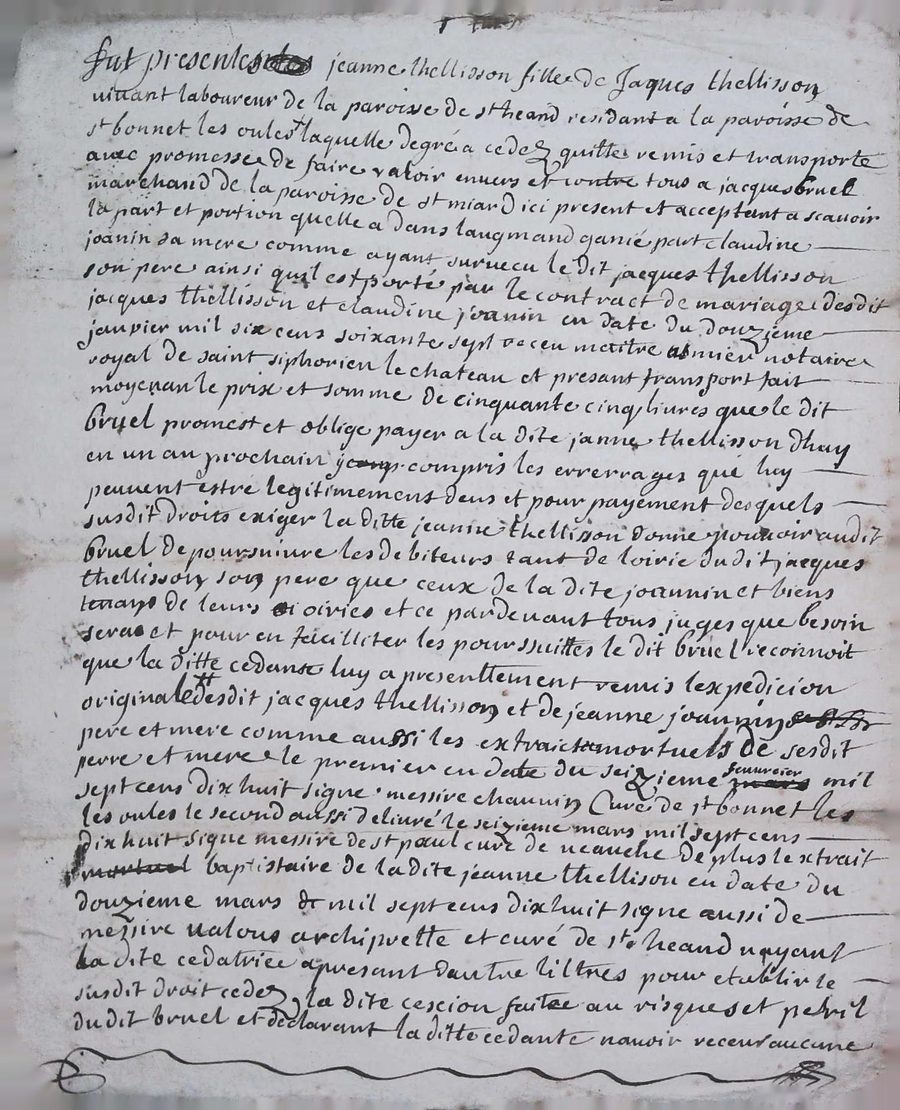 fut presente jeanne thellisson fille de Jaques thellisson
vivant laboureur de la paroisse de st heand residant a la paroisse de
st bonnet les oules laquelle degré a cedez quitte remis et transporte
avec promesse de faire valoir envers et contre tous a jacques bruel
marchand de la paroisse de st miard ici present et acceptant a scavoir
la part et portion quelle a dans laugmand ganié part claudine
joanin sa mere comme ayant survecu le dit jacques thellisson
son pere ainsi quil est porté par le contract de mariage desdit
jacques thellisson et claudine joanin en date du douzieme
janvier mil six cens soixante sept receu maitre notaire
royal de saint siphorien le chateau et presant transport fait
moyenan le prix et somme de cinquante cinq livres que le dit
bruel promest et oblige payer a la dite janne thellisson dhuy
en un an prochain compris les errerrages que luy
peuvent estre legitimement deus et pour payement desquels
susdit droits exiger la ditte jeanne thellisson donne pouvoir audit
bruel de poursuivre les debiteurs tant de loirie du dit jacques
thellisson son pere que ceux de la dite joannin et biens
tenans de leurs oiries et ce pardevant tous juges que besoin
sera et pour en facilliter les poursuittes le dit bruel reconnoit
que la ditte cedante luy a presentement remis lexpedicion
originale desdit jacques thellisson et de jeanne joannin
pere et mere comme aussi les extraict mortuels de sesdit
perre et mere le premier en date du seizieme feuvreier mil
sept cens dix huit signe messire chauvin Curé de st bonnet les
les oules le second aussi delivré le seizieme mars mil sept cens
dix huit signe messire de st paul curé de neauche de plus lextrait
mortuel baptistaire de la dite jeanne thellison en date du
douzieme mars de mil sept cens dix huit signe aussi de
messire valous archiprette et curé de st heand nayant
la dite cedatrice apresant dautre tiltres pour etablir le
susdit droit cedez la dite cescion faite au risques et peril
du dit bruel et declarant la ditte cedante navoir receu aucune